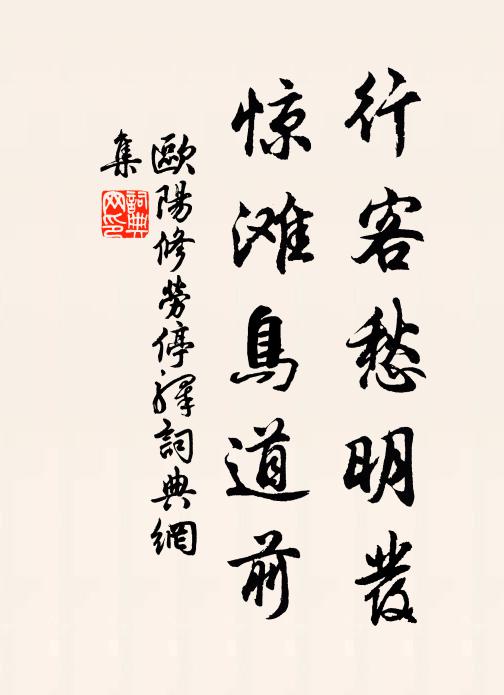 行客愁明發
惊滩鳥道前
歐陽修勞停驛詞典網
集
詞典网印